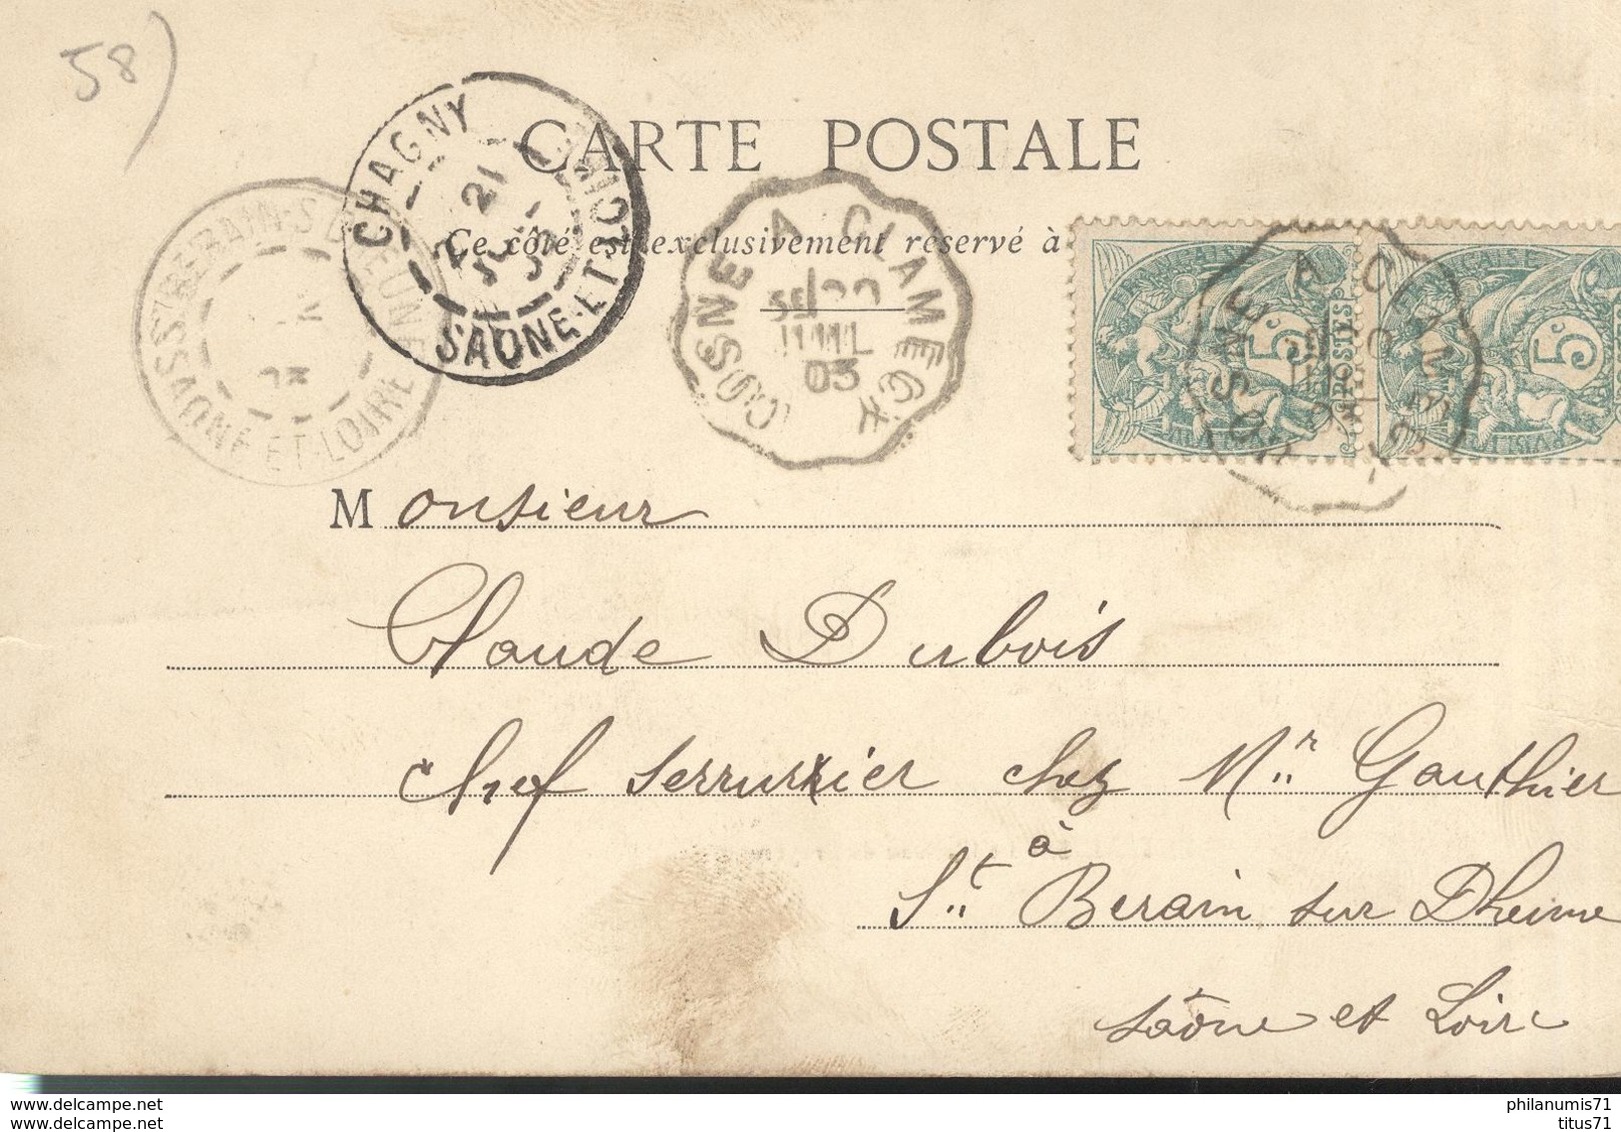 58)
CARTE POSTALE
Ce côté est exclusivement réservé à
CHAGNY
21
SAONE-ET-LOIRE
ST BERAIN-S-DHEUNE
SAONE-ET-LOIRE
COSNE A CLAMECY
03
5c
POSTES
5c
COSNE A CLAMECY
Monsieur
Claude Dubois
chef serrurier chez Mr Gauthier
à
St Berain sur Dheune
Saône et Loire
www.delcampe.net
www.delcampe.net
philanumis71
titus71